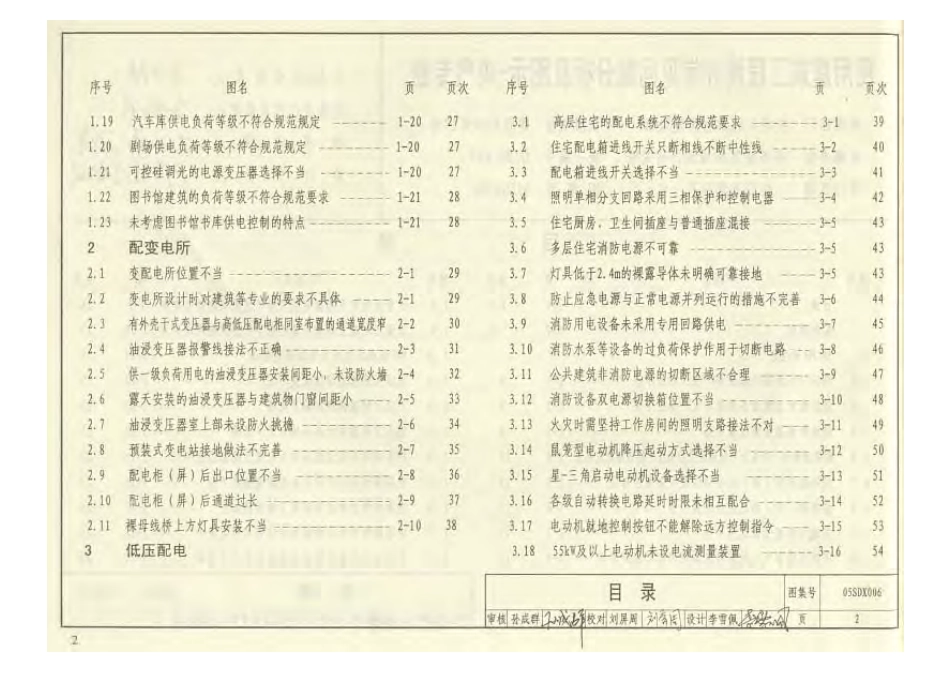 序号 图名 页 页次
1.19 汽车库供电负荷等级不符合规范规定 1-20 27
1.20 剧场供电负荷等级不符合规范规定 1-20 27
1.21 可控硅调光的电源变压器选择不当 1-20 27
1.22 图书馆建筑的负荷等级不符合规范要求 1-21 28
1.23 未考虑图书馆书库供电控制的特点 1-21 28
2 配变电所
2.1 变配电所位置不当 2-1 29
2.2 变电所设计时对建筑等专业的要求不具体 2-1 29
2.3 有外壳干式变压器与高低压配电柜同室布置的通道宽度窄 2-2 30
2.4 油浸变压器报警线接法不正确 2-3 31
2.5 供一级负荷用电的油浸变压器安装间距小、未设防火墙 2-4 32
2.6 露天安装的油浸变压器与建筑物门窗间距小 2-5 33
2.7 油浸变压器室上部未设防火挑檐 2-6 34
2.8 预装式变电站接地做法不完善 2-7 35
2.9 配电柜(屏)后出口位置不当 2-8 36
2.10 配电柜(屏)后通道过长 2-9 37
2.11 裸母线桥上方灯具安装不当 2-10 38
3 低压配电
序号 图名 页 页次
3.1 高层住宅的配电系统不符合规范要求 3-1 39
3.2 住宅配电箱进线开关只断相线不断中性线 3-2 40
3.3 配电箱进线开关选择不当 3-3 41
3.4 照明单相分支回路采用三相保护和控制电器 3-4 42
3.5 住宅厨房、卫生间插座与普通插座混接 3-5 43
3.6 多层住宅消防电源不可靠 3-5 43
3.7 灯具低于2.4m的裸露导体未明确可靠接地 3-5 43
3.8 防止应急电源与正常电源并列运行的措施不完善 3-6 44
3.9 消防用电设备未采用专用回路供电 3-7 45
3.10 消防水泵等设备的过负荷保护作用于切断电路 3-8 46
3.11 公共建筑非消防电源的切断区域不合理 3-9 47
3.12 消防设备双电源切换箱位置不当 3-10 48
3.13 火灾时需坚持工作房间的照明支路接法不对 3-11 49
3.14 鼠笼型电动机降压起动方式选择不当 3-12 50
3.15 星-三角启动电动机设备选择不当 3-13 51
3.16 各级自动转换电路延时时限未相互配合 3-14 52
3.17 电动机就地控制按钮不能解除远方控制指令 3-15 53
3.18 55kW及以上电动机未设电流测量装置 3-16 54
目 录 图集号 05SDX006
审核 孙成群 校对 刘屏周 设计 李雪佩 页 2
2